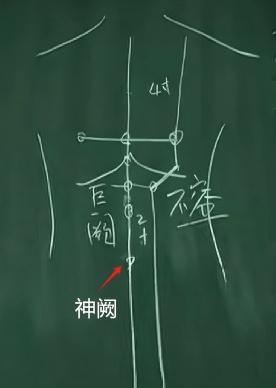 4寸
巨阙
2寸
不容
神阙